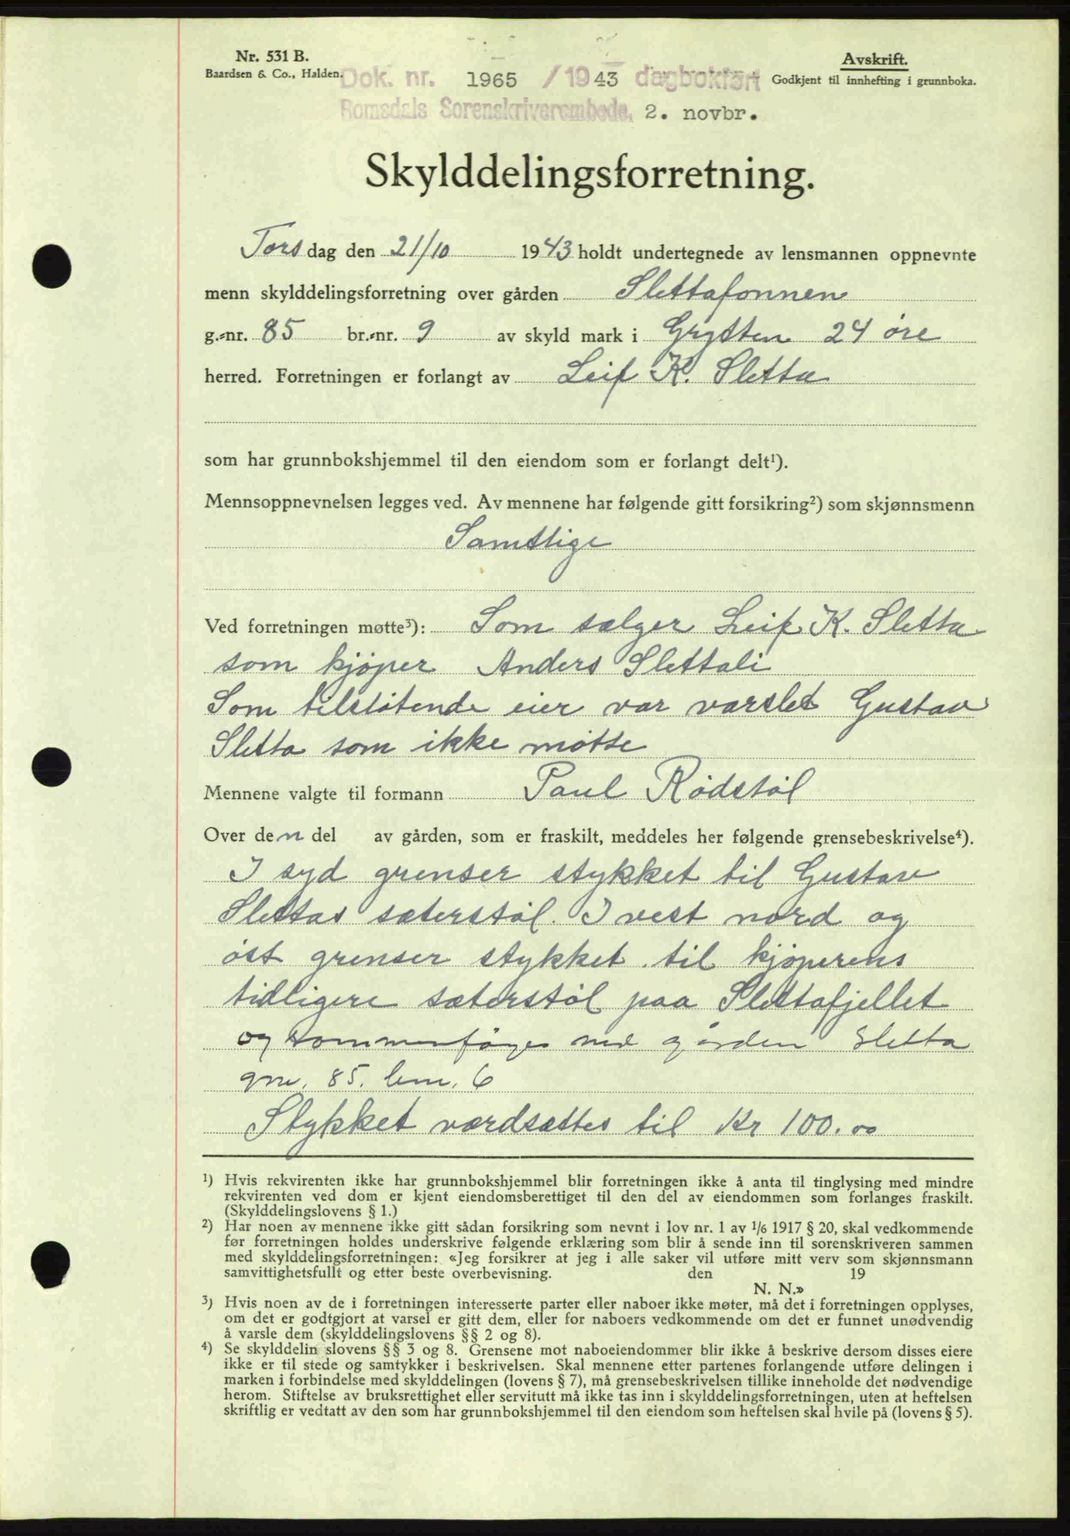 Nr. 531 B.
Baardsen & Co., Halden.
Avskrift.
Godkjent til innhefting i grunnboka.
Dok. nr. 1965 /1943 dagbokført
Romsdals Sorenskriverembede, 2. novbr.
Skylddelingsforretning.
Torsdag den 21/10 1943 holdt undertegnede av lensmannen oppnevnte
menn skylddelingsforretning over gården Slettafonnen
g.-nr. 85 br.-nr. 9 av skyld mark i Grytten 24 øre
herred. Forretningen er forlangt av Leif K. Sletta
som har grunnbokshjemmel til den eiendom som er forlangt delt¹).
Mennsoppnevnelsen legges ved. Av mennene har følgende gitt forsikring²) som skjønnsmenn
Samtlige
Ved forretningen møtte³): Som sælger Leif K. Sletta
som kjøper Anders Slettali
Som tilstøtende eier var varslet Gustav
Sletta som ikke møtte
Mennene valgte til formann Paul Rødstøl
Over den del av gården, som er fraskilt, meddeles her følgende grensebeskrivelse⁴).
I syd grenser stykket til Gustav
Slettas sæterstøl. I vest nord og
øst grenser stykket til kjøperens
tidligere sæterstøl paa Slettafjellet
og sommenføyes med gården Sletta
gnr. 85. bnr. 6
Stykket værdsættes til Kr 100.00
¹) Hvis rekvirenten ikke har grunnbokshjemmel blir forretningen ikke å anta til tinglysing med mindre
rekvirenten ved dom er kjent eiendomsberettiget til den del av eiendommen som forlanges fraskilt.
(Skylddelingslovens § 1.)
²) Har noen av mennene ikke gitt sådan forsikring som nevnt i lov nr. 1 av 1/6 1917 § 20, skal vedkommende
før forretningen holdes underskrive følgende erklæring som blir å sende inn til sorenskriveren sammen
med skylddelingsforretningen: «Jeg forsikrer at jeg i alle saker vil utføre mitt verv som skjønnsmann
samvittighetsfullt og etter beste overbevisning. den 19
N. N.»
³) Hvis noen av de i forretningen interesserte parter eller naboer ikke møter, må det i forretningen opplyses,
om det er godtgjort at varsel er gitt dem, eller for naboers vedkommende om det er funnet unødvendig
å varsle dem (skylddelingslovens §§ 2 og 8).
⁴) Se skylddelin slovens §§ 3 og 8. Grensene mot naboeiendommer blir ikke å beskrive dersom disses eiere
ikke er til stede og samtykker i beskrivelsen. Skal mennene etter partenes forlangende utføre delingen i
marken i forbindelse med skylddelingen (lovens § 7), må grensebeskrivelsen tillike inneholde det nødvendige
herom. Stiftelse av bruksrettighet eller servitutt må ikke tas inn i skylddelingsforretningen, uten at heftelsen
skriftlig er vedtatt av den som har grunnbokshjemmel til den eiendom som heftelsen skal hvile på (lovens § 5).